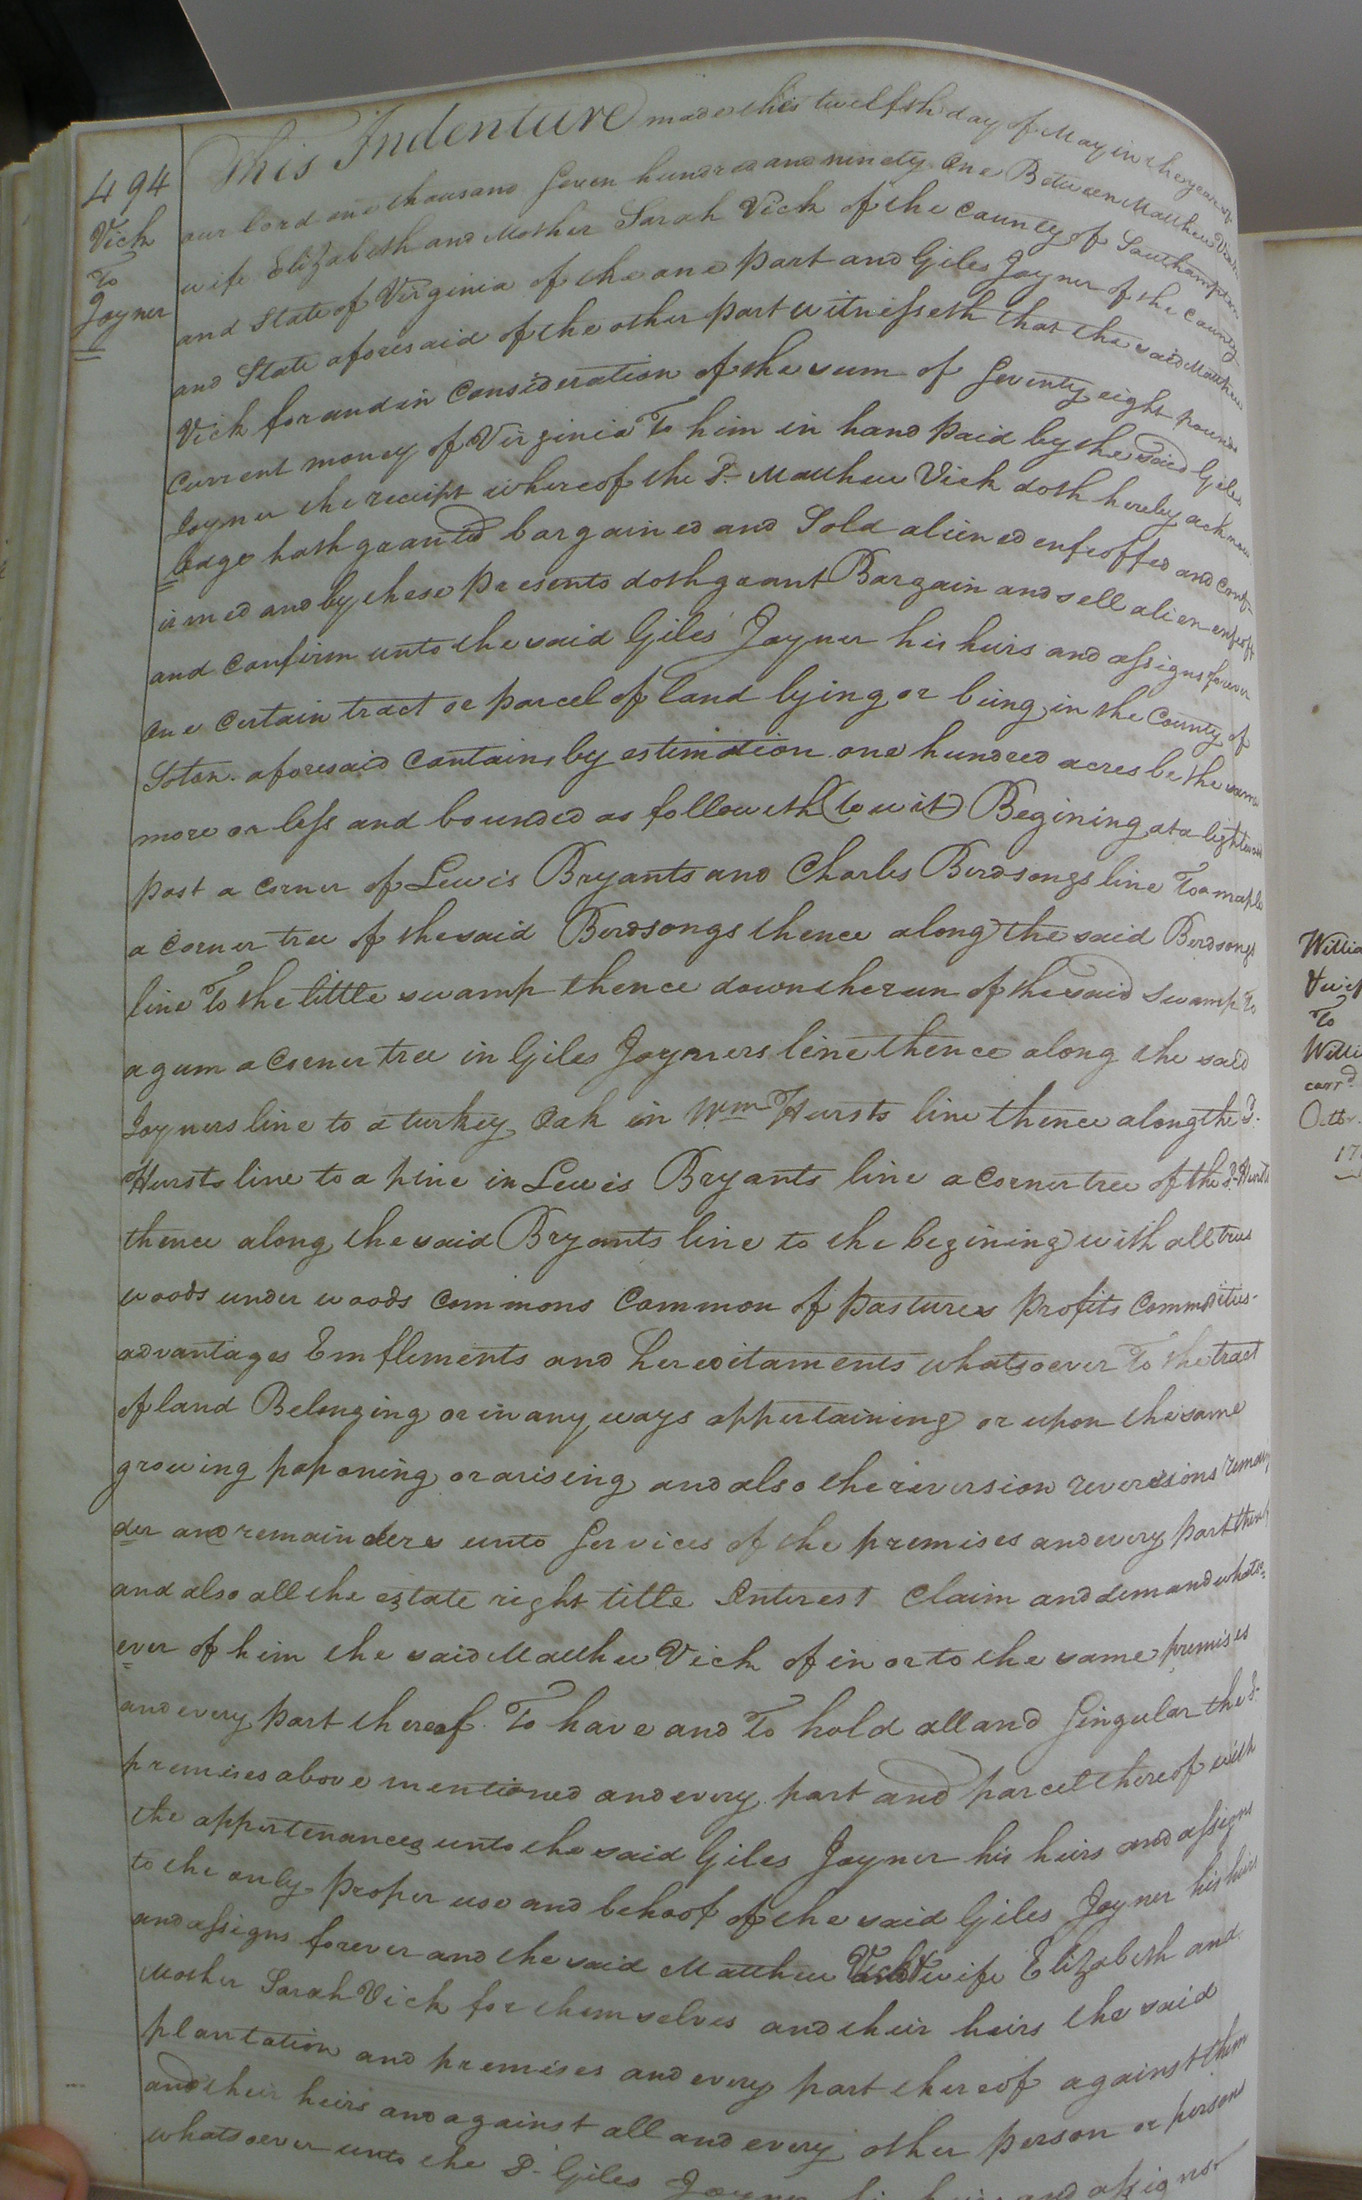 494
Vick
To
Joyner
This Indenture made this twelfth day of May in the year of
our lord one thousand Seven hundred and ninety One Between Matthew Vick
wife Elizabeth and Mother Sarah Vick of the County of Southampton
and State of Virginia of the one part and Giles Joyner of the County
and State aforesaid of the other part witnesseth that the said Matthew
Vick for and in Consideration of the sum of Seventy eight pounds
Current money of Virginia To him in hand paid by the said Giles
Joyner the receipt whereof the Sd. Matthew Vick doth hereby acknow
ledge hath granted bargained and Sold aliened enfeoffed and conf-
irmed and by these presents doth grant Bargain and sell alien enfeoff
and Confirm unto the said Giles Joyner his heirs and assigns forever
One Certain tract or parcel of land lying or being in the County of
Soton. aforesaid Contains by estimation one hundred acres be the same
more or less and bounded as followeth (to wit) Begining at a lightwood
post a corner of Lewis Bryants and Charles Birdsongs line To a maple
a corner tree of the said Birdsongs thence along the said Birdsongs
line To the little swamp thence down the run of the said swamp To
a gum a Corner tree in Giles Joyners line thence along the said
Joyners line to a turkey Oak in Wm Hursts line thence along the Sd.
Hursts line to a pine in Lewis Bryants line a Corner tree of the Sd. Hursts
thence along the said Bryants line to the begining with all trees
woods under woods Commons Common of pastures profits Commodities
advantages Emflements and hereditaments whatsoever To the tract
of land Belonging or in any ways appertaining or upon the same
growing paponing or arising and also the reversion reversions remain
der and remainders unto Services of the premises and every part thereof
and also all the estate right title Interest Claim and demand whatso=
ever of him the said Matthew Vick of in or to the same premises
and every part thereof. To have and To hold all and Singular the Sd.
premises above mentioned and every part and parcel thereof with
the appertenances unto the said Giles Joyner his heirs and assigns
to the only proper use and behoof of the said Giles Joyner his heirs
and assigns forever and the said Matthew Vick & wife Elizabeth and
Mother Sarah Vick for themselves and their heirs the said
plantation and premises and every part thereof against them
and their heirs and against all and every other person or persons
whatsoever unto the Sd. Giles Joyner his heirs and assigns
Willia
& wif
To
Willi
carrd
Octbr.
17